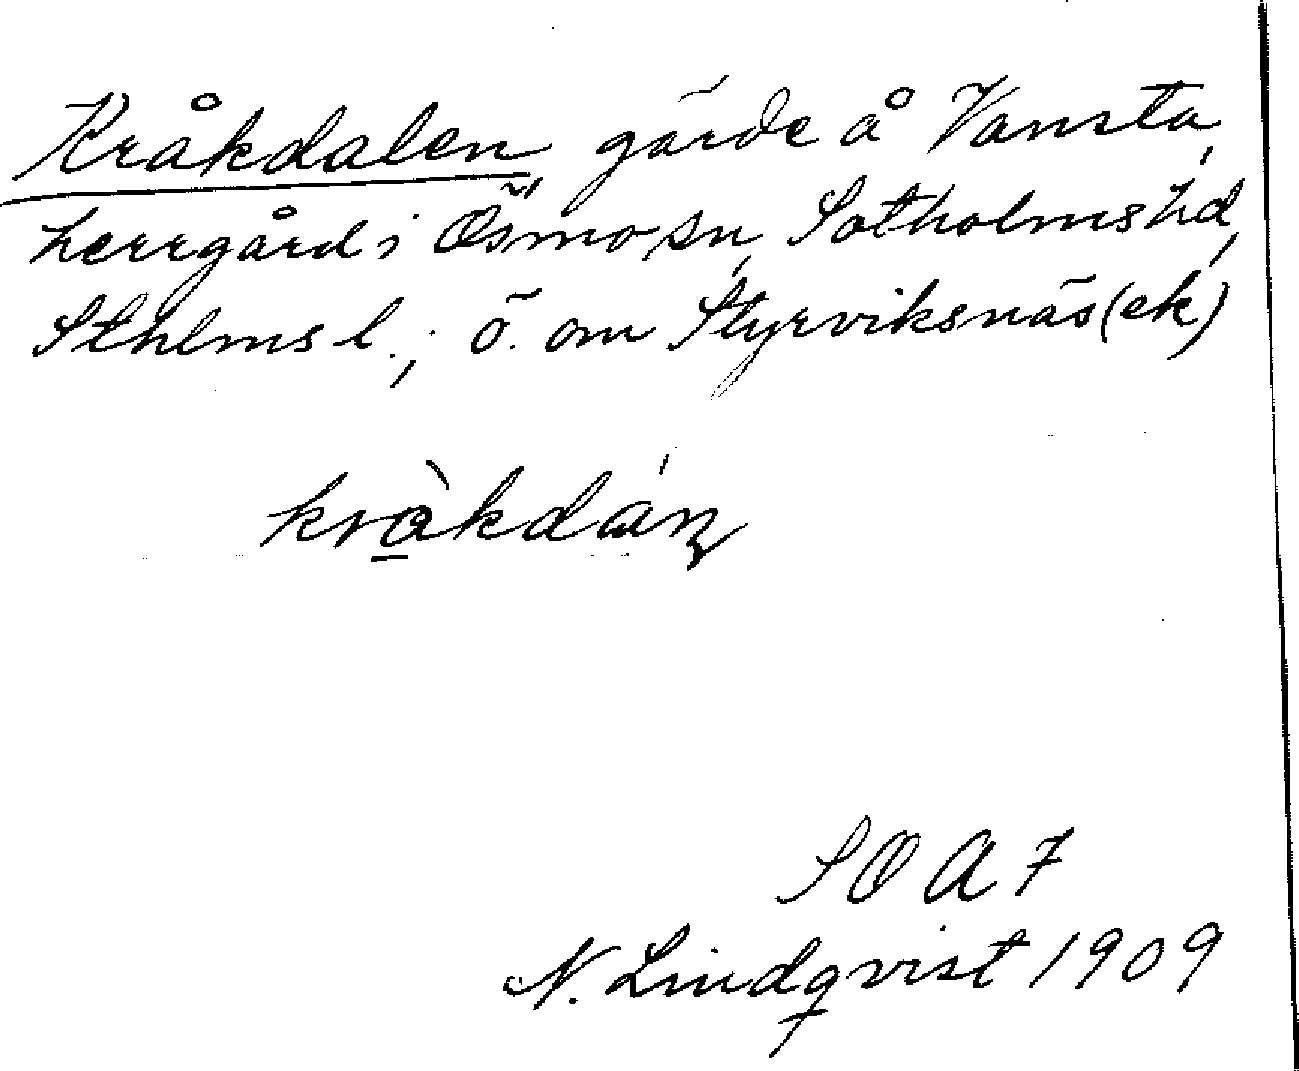 Kråkdalen, gärde å Vansta,
herrgård i Ösmo sn, Sotholms hd,
Sthlms l.; ö. om Styrviksnäs (ek)
SOA 7
N. Lindqvist 1909